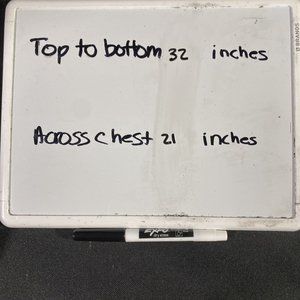 Top to bottom 32 inches
Across chest 21 inches
BRANDS
EXPO